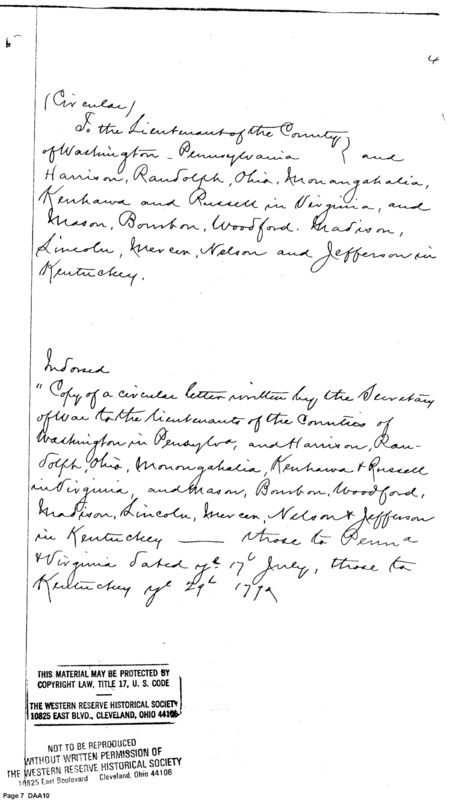 4
(Circular)
To the Lieutenant of the County }
of Washington - Pennsylvania { and
Harrison, Randolph, Ohio, Monangahalia,
Kenhawa and Russell in Virginia, and
Mason, Bourbon, Woodford. Madison,
Lincoln, Mercer, Nelson and Jefferson in
Kentuckey.
Indorsed
" Copy of a circular letter written by the Secretary
of War to the lieutenants of the Counties of
Washington in Pensylva, and Harrison, Ran-
dolph, Ohio, Monongahalia, Kenhawa & Russell
in Virginia, and Mason, Bourbon, Woodford,
Madison, Lincoln, Mercer, Nelson & Jefferson
in Kentuckey —— those to Penna
& Virginia dated ye. 17th July, those to
Kentuckey ye 29th 1792
THIS MATERIAL MAY BE PROTECTED BY
COPYRIGHT LAW, TITLE 17, U. S. CODE
THE WESTERN RESERVE HISTORICAL SOCIETY
10825 EAST BLVD., CLEVELAND, OHIO 44106
NOT TO BE REPRODUCED
WITHOUT WRITTEN PERMISSION OF
THE WESTERN RESERVE HISTORICAL SOCIETY
10825 East Boulevard Cleveland, Ohio 44106
Page 7 DAA10